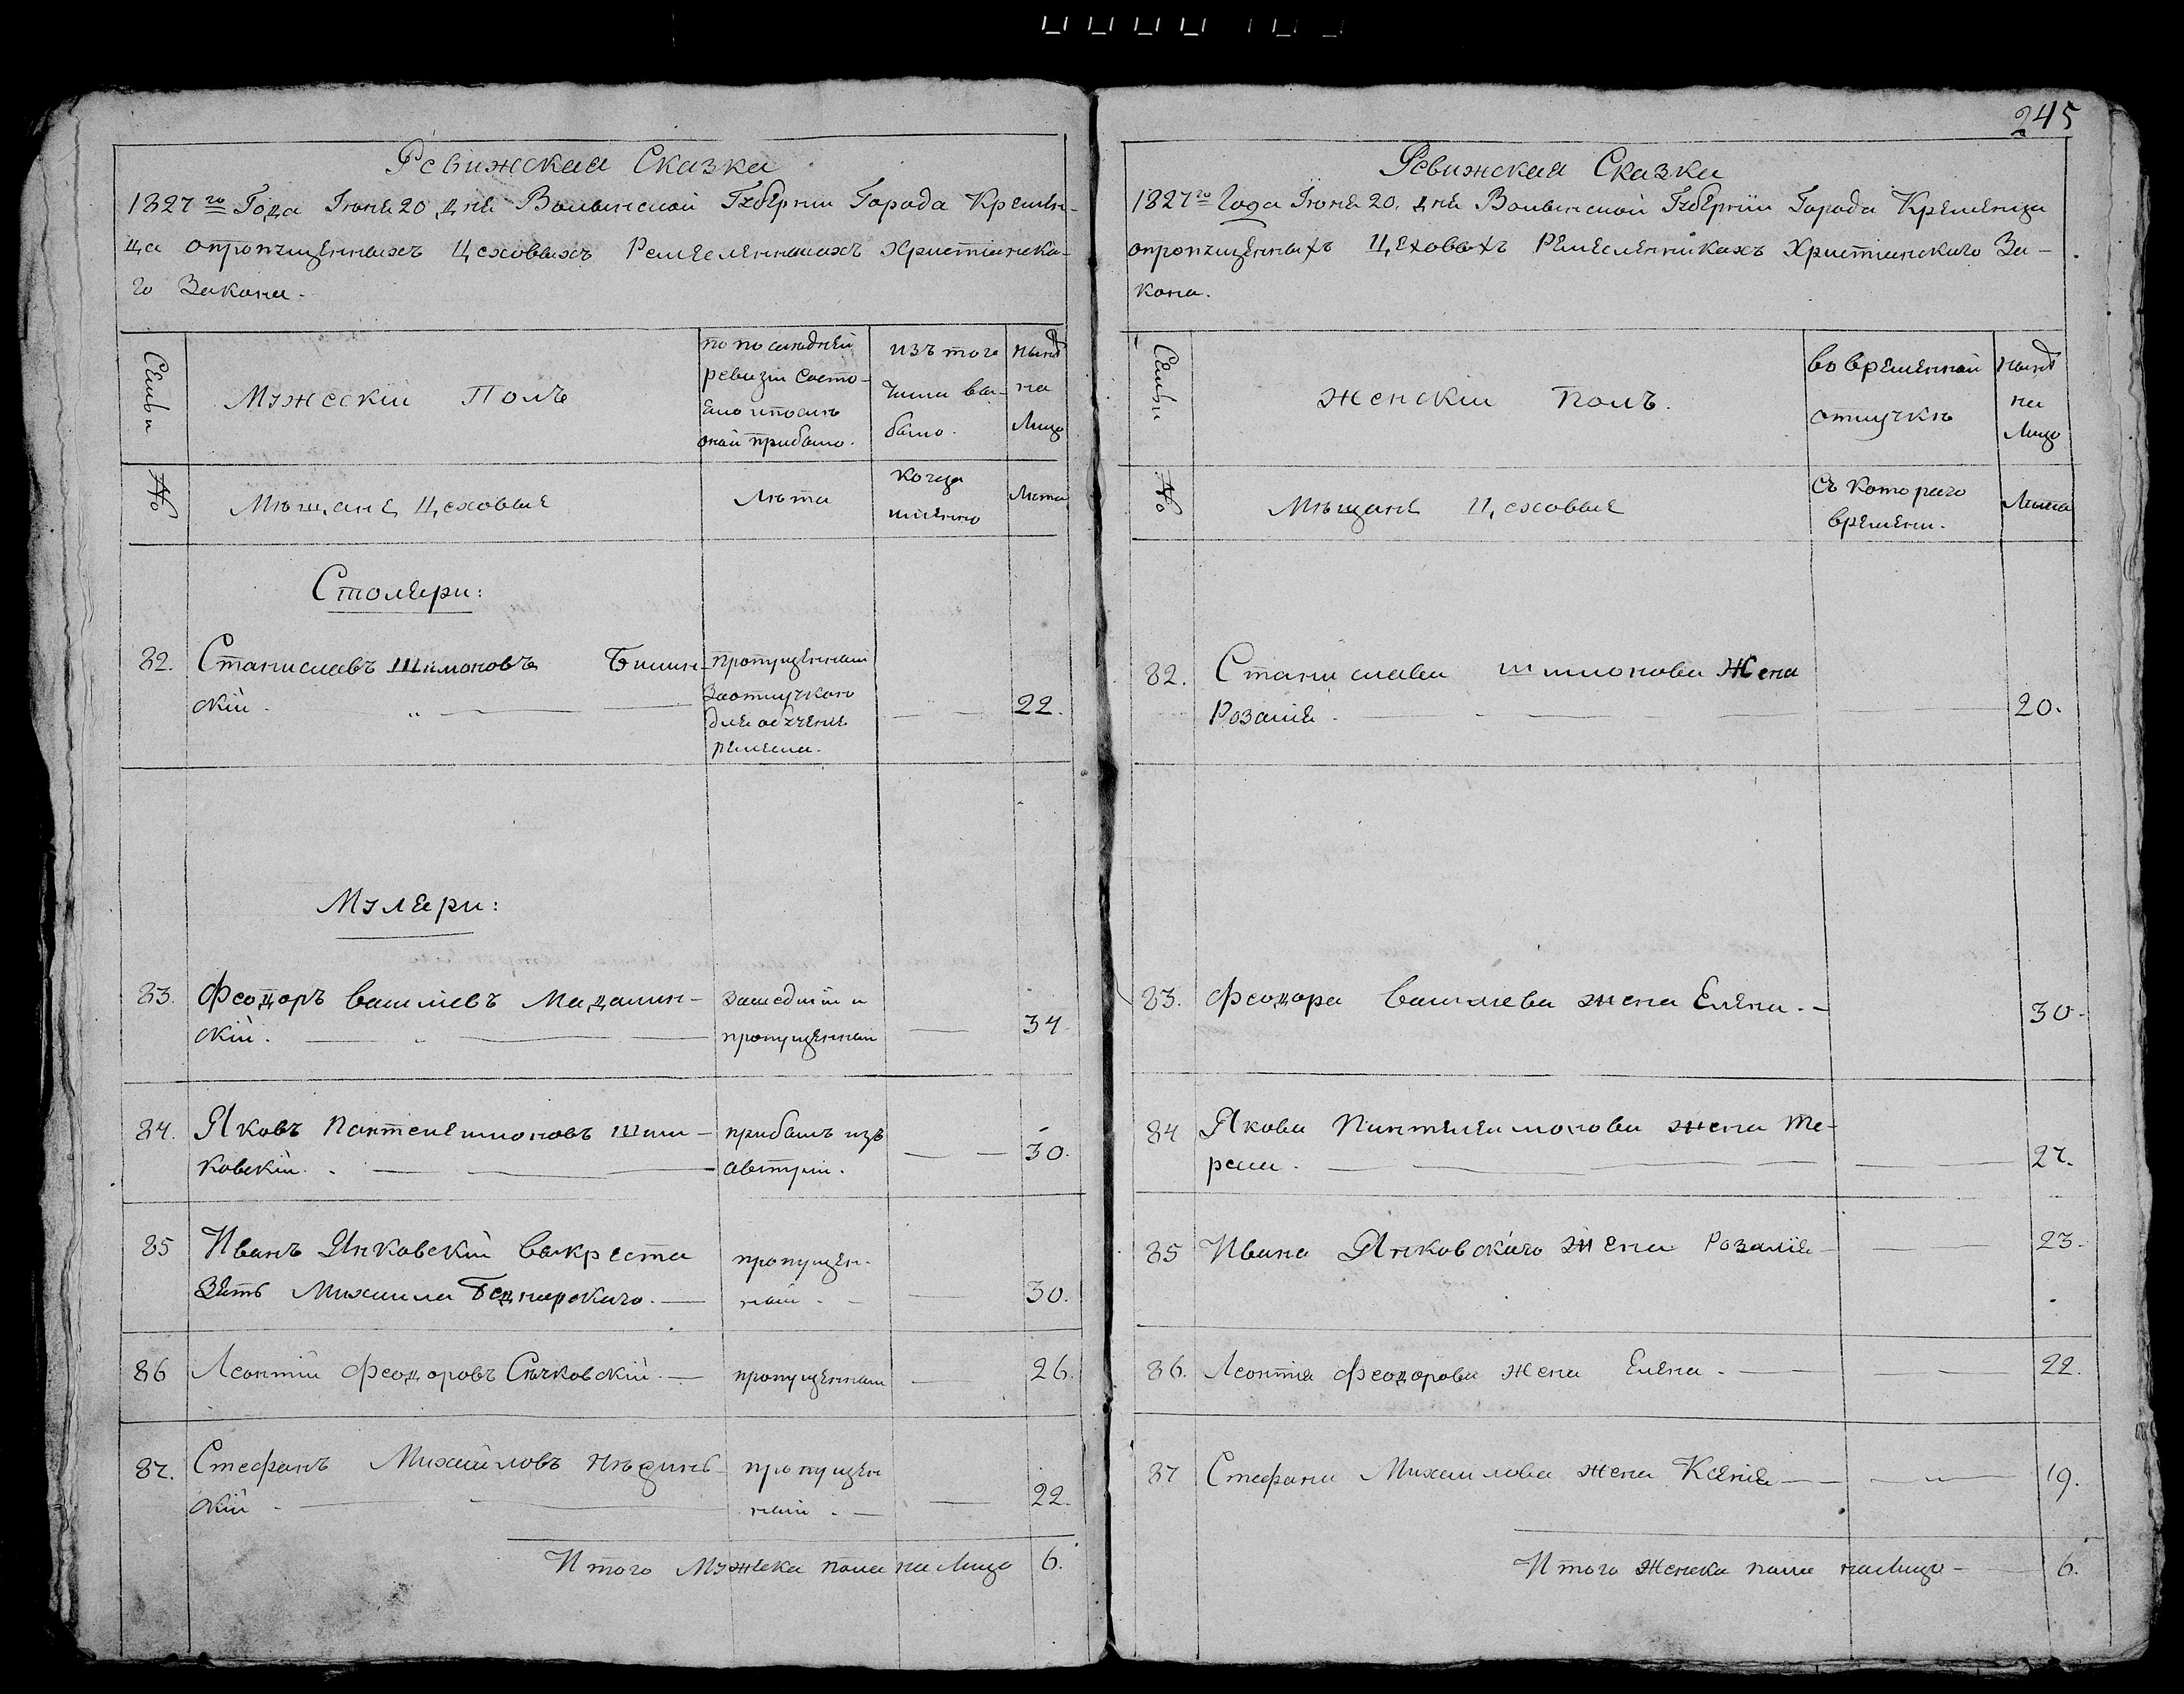 245
Ревижская Сказка
1827го Года Іюня 20 дня Волынской Губернии Города Кремен

ца опропущенныхъ Цеховыхъ Ремесленныхъ Христіанска-
го Закона.
Семьи
Мужескій Полъ
по последней
ревизіи состо-
яло и после
оной прибыло.
изъ того
числа вы-
было.
ныне
на
Лицо
No
Мѣщане Цеховые
Лѣта
когда
именно
Лета
Столяри:
82. Станиславъ Шимоновъ
скій.
пропущенный
заотлучкою
для обученія
ремесла.
22.
Муляри:
83. Феодоръ Василіевъ Мадалин-
скій.
зашедшій и
пропущенный
34.
84. Яковъ Пантелеимоновъ
ковскій.
прибылъ изъ
Австріи.
30.
85 Иванъ Янковскій выкреста
Зять Михаила Беднарскаго.
пропущен-
ный.
30.
86 Леонтій Феодоровъ Сѣчковскій.
пропущенный
26.
87. Стефанъ Михайловъ
скій
пропущен
ный.
22.
Итого Мужеска пола на Лицо 6.
Ревижская Сказка
1827го Года Іюня 20. дня Волынской Губерніи Города Кременца
опропущенныхъ Цеховыхъ Ремесленникахъ Христіанскаго За-
кона.
Семьи
Женскій Полъ.
во временной
отлучкѣ
ныне
на
Лицо
No
Мѣщане Цеховые
Съ котораго
времени.
Лета
82. Станислава Шимонова Жена
Розалія.
20.
83. Феодора Василіева жена Елена.
30.
84 Якова Пантелеимонова жена Те-
реса.
27.
85 Ивана Янковскаго жена Розалія
23.
86. Леонтія Феодорова жена Елена.
22.
87 Стефана Михайлова жена Ксенія
19.
Итого женска пола на Лицо 6.